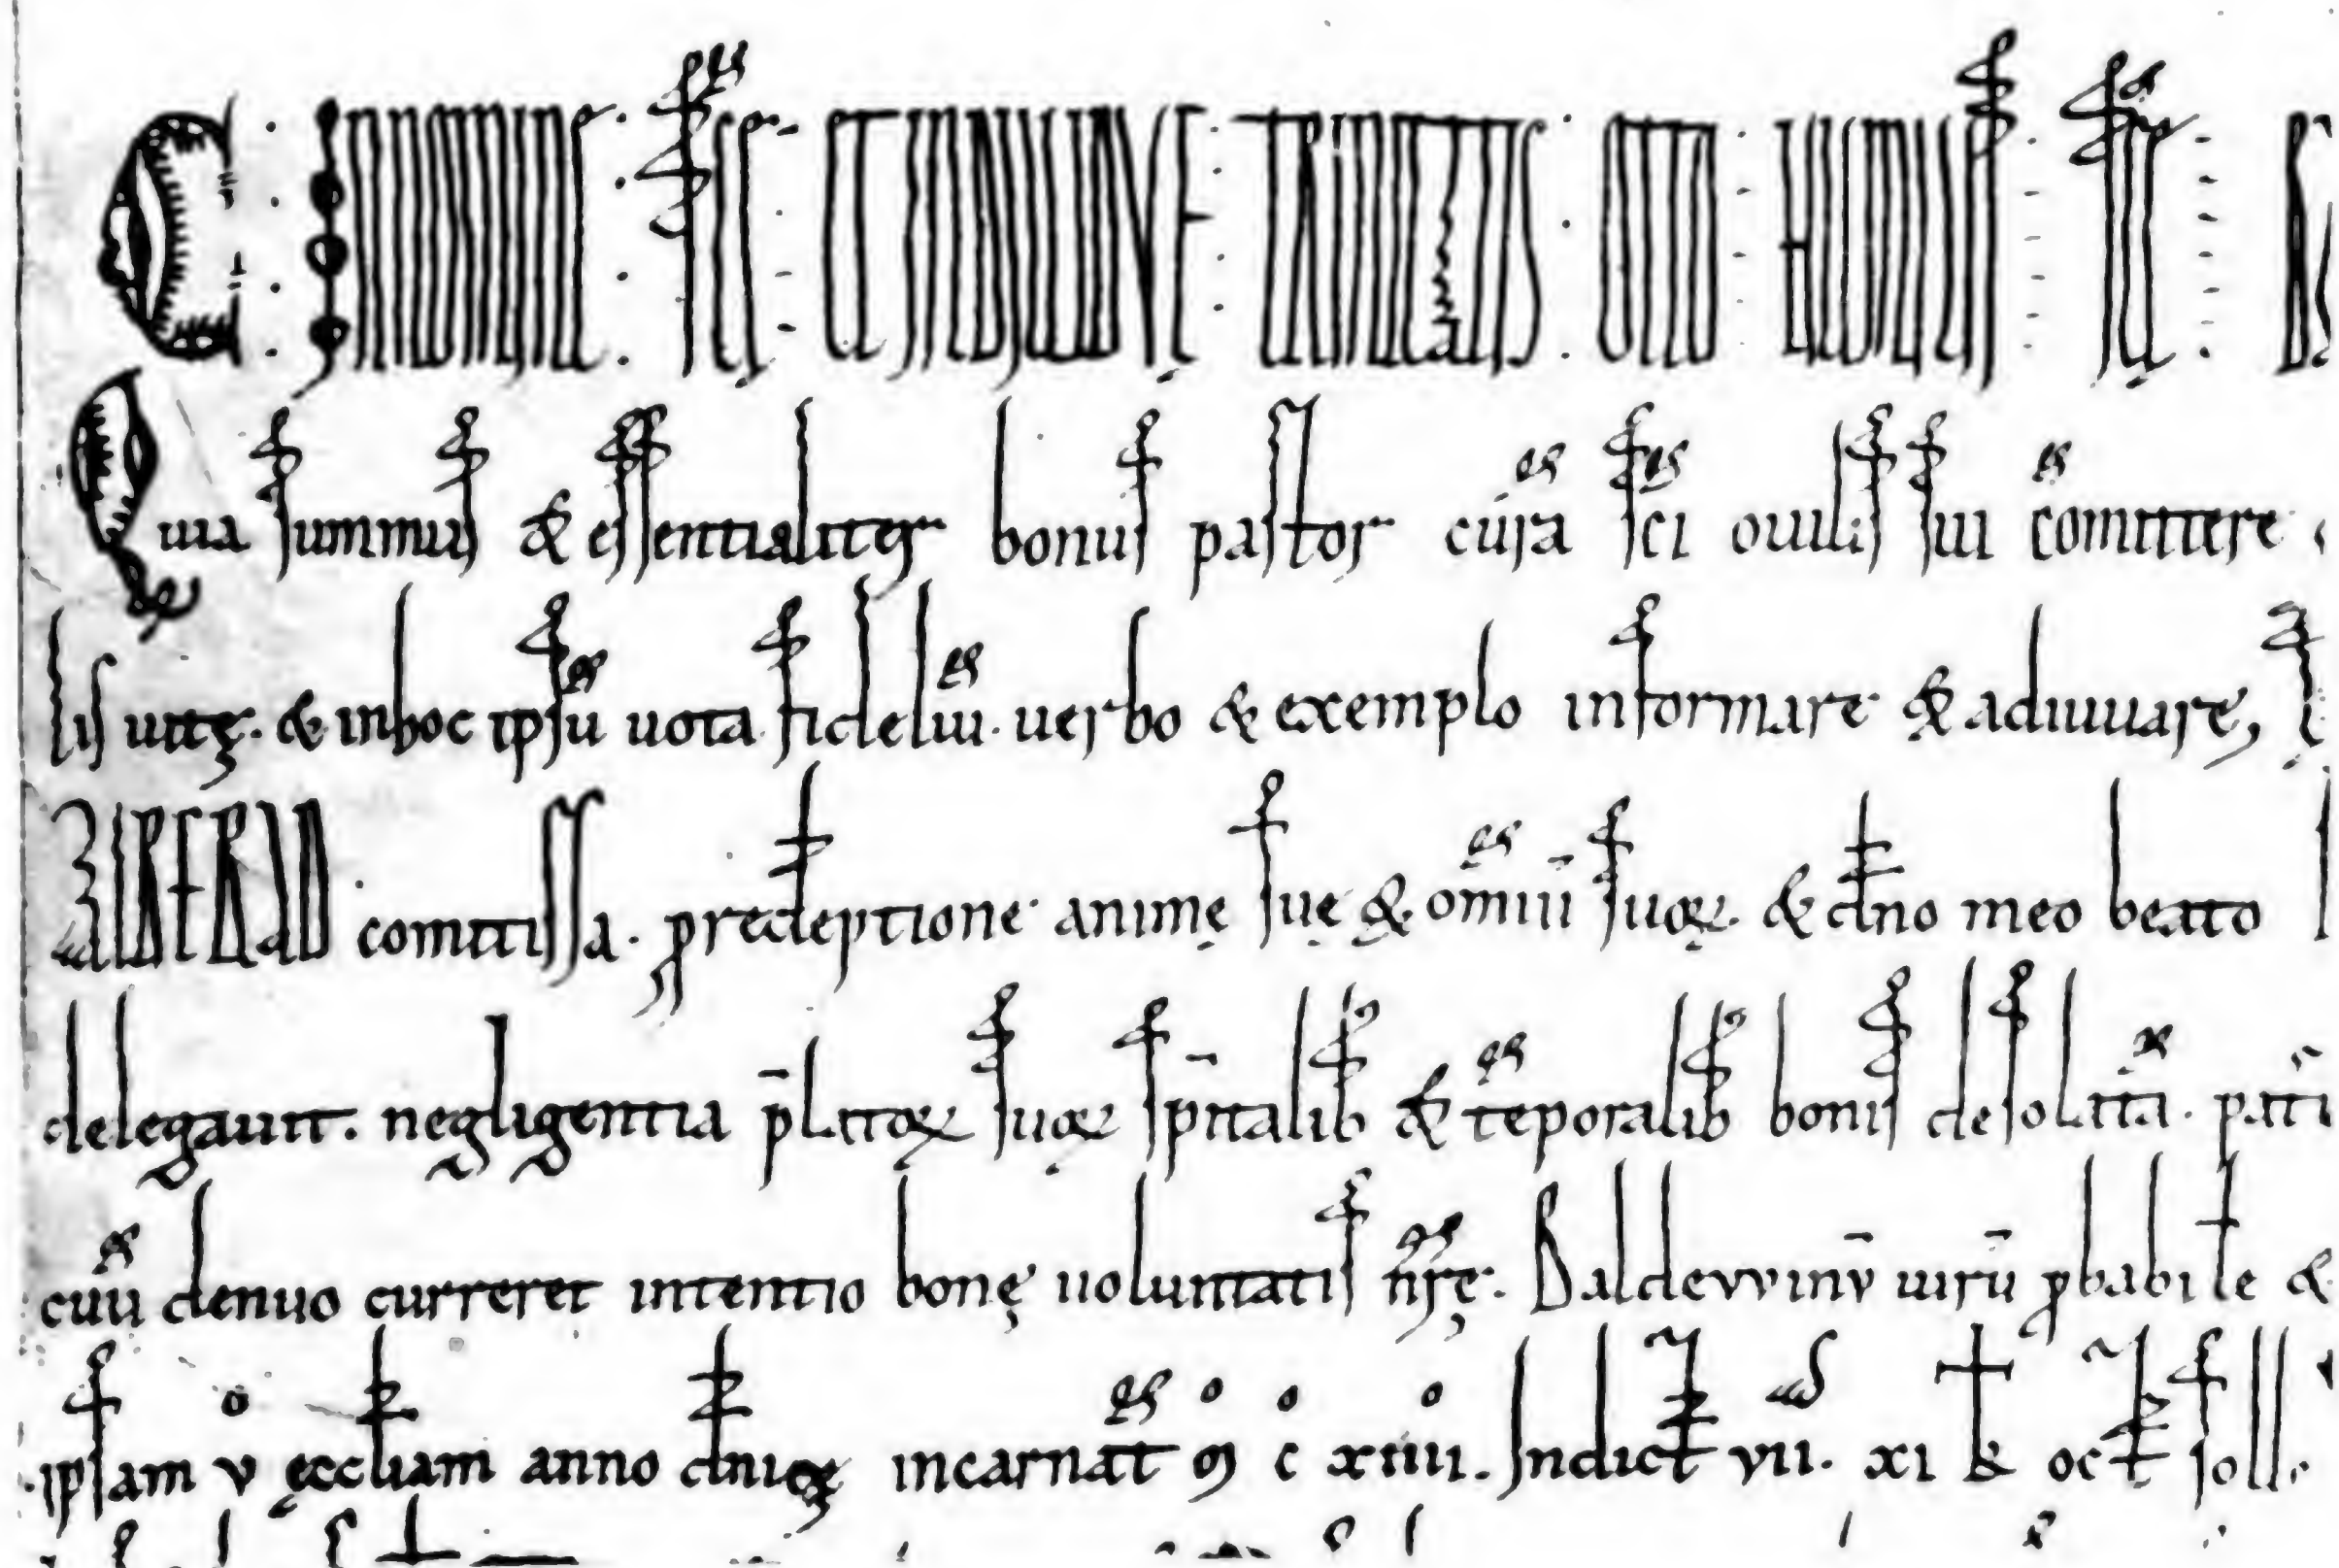 C IN NOMINE SCE ET INDIVIDVE TRINITATIS OTTO HUMILIS
Quia summus & essentialiter bonus pastor curā sc̄i ouilis sui cōmittere
lis uitę. & in hoc ipsū uota fideliū. uerbo & exemplo informare & adiuuare,
ALBERAD comitissa. p redeptione animę suę & om̄iū suoꝝ. & dn̄o meo beato
delegauit. negligentia p̄latoꝝ suoꝝ sp̄italib; & tēporalib; bonis desolatā. pati
cuū denuo curreret intentio bonę uoluntatis nr̄ę. Baldevvinv̄ uirū ꝓbabile &
ipsam v ęccl̄iam anno dn̄icę incarnat̄ ꝏ c xiiii. Indict̄ vii. xi k oct̄ soll